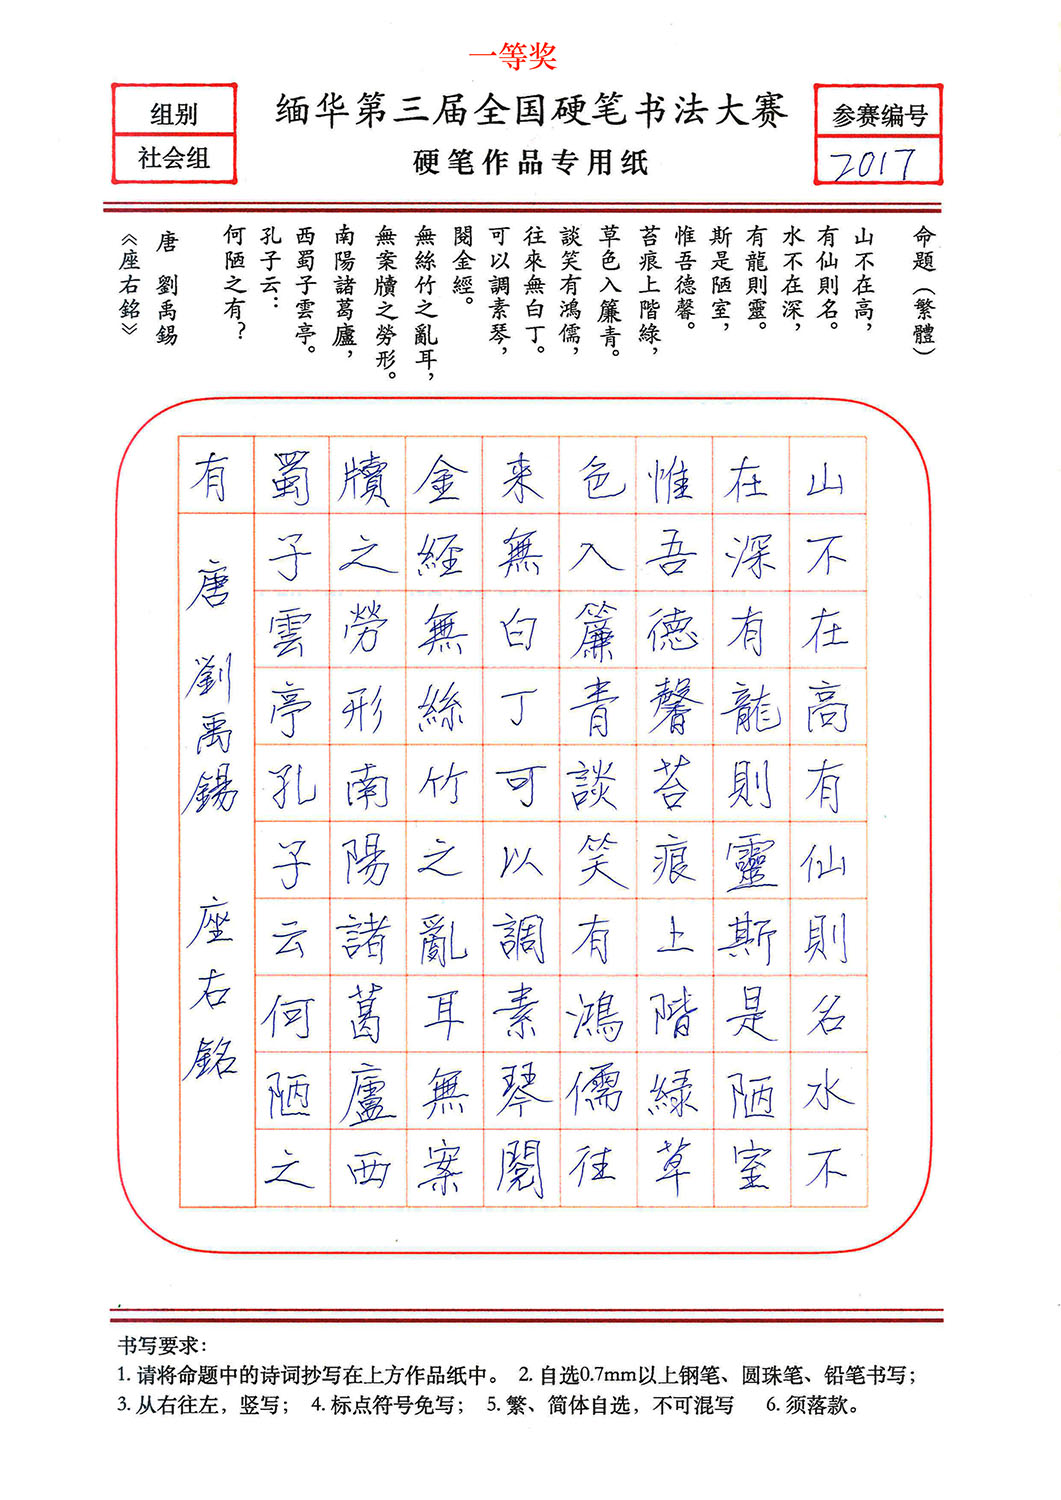 一等奖
组别
社会组
缅华第三届全国硬笔书法大赛
硬笔作品专用纸
参赛编号
2017
命題（繁體）
山不在高，
有仙則名。
水不在深，
有龍則靈。
斯是陋室，
惟吾德馨。
苔痕上階綠，
草色入簾青。
談笑有鴻儒，
往來無白丁。
可以調素琴，
閱金經。
無絲竹之亂耳，
無案牘之勞形。
南陽諸葛廬，
西蜀子雲亭。
孔子云：
何陋之有？
唐 劉禹錫
《座右銘》
山不在高有仙則名水不
在深有龍則靈斯是陋室
惟吾德馨苔痕上階綠草
色入簾青談笑有鴻儒往
來無白丁可以調素琴閱
金經無絲竹之亂耳無案
牘之勞形南陽諸葛廬西
蜀子雲亭孔子云何陋之
有
唐 劉禹錫 座右銘
书写要求：
1. 请将命题中的诗词抄写在上方作品纸中。 2. 自选0.7mm以上钢笔、圆珠笔、铅笔书写；
3. 从右往左，竖写； 4. 标点符号免写； 5. 繁、简体自选，不可混写 6. 须落款。